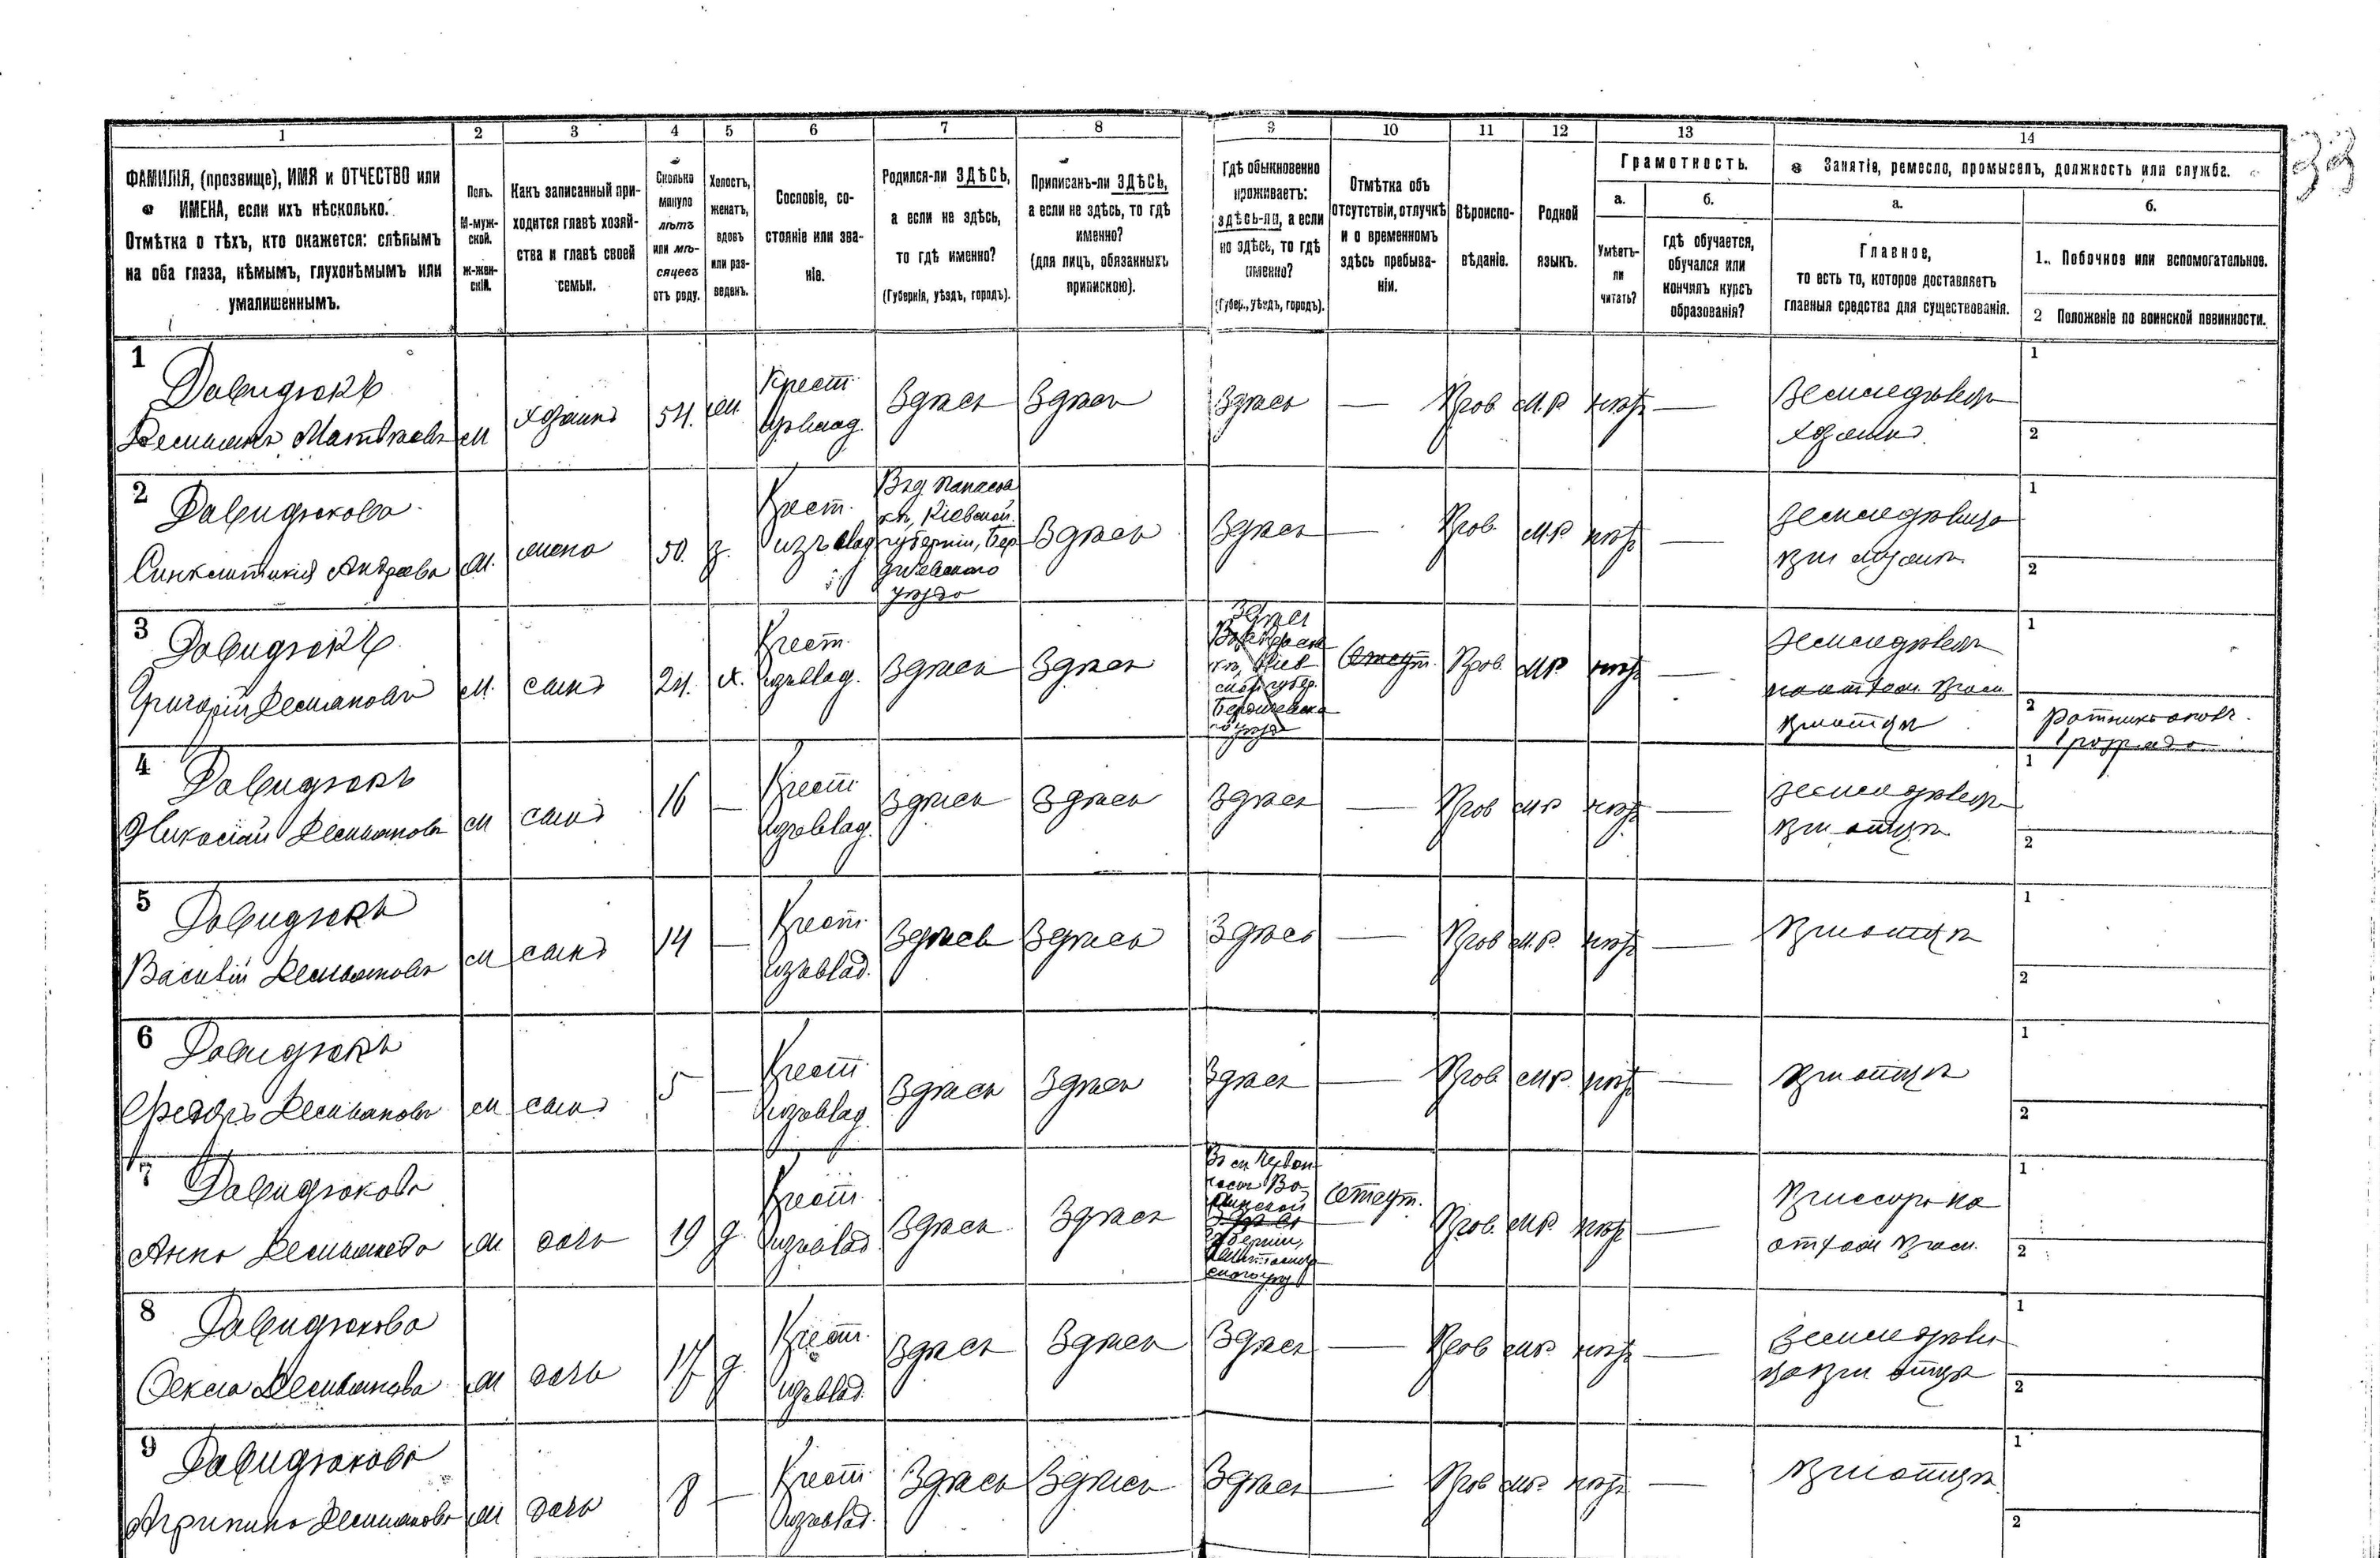 33
1 2 3 4 5 6 7 8 9 10 11 12 13 14
ФАМИЛІЯ, (прозвище), ИМЯ и ОТЧЕСТВО или
ИМЕНА, если ихъ нѣсколько.
Отмѣтка о тѣхъ, кто окажется: слѣпымъ
на оба глаза, нѣмымъ, глухонѣмымъ или
умалишеннымъ.
Полъ.
М-муж-
ской.
ж-жен-
скій.
Какъ записанный при-
ходится главѣ хозяй-
ства и главѣ своей
семьи.
Сколько
минуло
лѣтъ
или мѣ-
сяцевъ
отъ роду.
Холостъ,
женатъ,
вдовъ
или раз-
веденъ.
Сословіе, со-
стояніе или зва-
ніе.
Родился-ли ЗДѢСЬ,
а если не здѣсь,
то гдѣ именно?
(Губернія, уѣздъ, городъ).
Приписанъ-ли ЗДѢСЬ,
а если не здѣсь, то гдѣ
именно?
(для лицъ, обязанныхъ
припискою).
Гдѣ обыкновенно
проживаетъ:
здѣсь-ли, а если
не здѣсь, то гдѣ
именно?
(Губер., уѣздъ, городъ).
Отмѣтка объ
отсутствіи, отлучкѣ
и о временномъ
здѣсь пребыва-
ніи.
Вѣроиспо-
вѣданіе.
Родной
языкъ.
Грамотность.
а.
Умѣетъ-
ли
читать?
б.
гдѣ обучается,
обучался или
кончилъ курсъ
образованія?
Занятія, ремесло, промыселъ, должность или служба.
а.
Главное,
то есть то, которое доставляетъ
главныя средства для существованія.
б.
1. Побочное или вспомогательное.
2 Положеніе по воинской повинности.
1
Давидюкъ
Демьянъ Матвѣевъ
м
хозяинъ
54.
Крест.
Здѣсь
Здѣсь
Здѣсь
—
Прав.
м.р.
нѣтъ
—
Земледѣлецъ
хозяинъ
1
2
2
Давидюкова
Синклитикія Андреева
жена
50.
з.
Крест.
изъ влад.
Кіевской
губерніи, Бер
дичевскаго
уѣзда
Здѣсь
Здѣсь
—
Прав.
м.р.
нѣтъ
—
1
2
3
Давидюкъ
Григорій Демьяновъ
м.
сынъ
24.
х.
Крест.
изъ влад.
Здѣсь
Здѣсь
Здѣсь
Отсут.
Прав.
м.р.
нѣтъ
—
Земледѣлецъ
при отцѣ
1
2
4
Давидюкъ
Николай Демьяновъ
м
сынъ
16
—
Крест.
изъ влад.
Здѣсь
Здѣсь
Здѣсь
—
Прав.
м.р.
нѣтъ
—
Земледѣлецъ
при отцѣ
1
2
5
Давидюкъ
Василій Демьяновъ
м
сынъ
14
—
Крест.
изъ влад.
Здѣсь
Здѣсь
Здѣсь
—
Прав.
м.р.
нѣтъ
—
при отцѣ
1
2
6
Давидюкъ
Федоръ Демьяновъ
м
сынъ
5
—
Крест.
изъ влад.
Здѣсь
Здѣсь
Здѣсь
—
Прав.
м.р.
нѣтъ
—
при отцѣ
1
2
7
Давидюкова
Анна Демьянова
дочь
19
д.
Крест.
изъ влад.
Здѣсь
Здѣсь
губерніи,
Отсут.
Прав.
м.р.
нѣтъ
—
Прислуга
1
2
8
Давидюкова
Фекла Демьянова
дочь
17
д.
Крест.
изъ влад.
Здѣсь
Здѣсь
Здѣсь
—
Прав.
м.р.
нѣтъ
—
Земледѣли
ца при отцѣ
1
2
9
Давидюкова
Агрипина Демьянова
дочь
8
—
Крест.
изъ влад.
Здѣсь
Здѣсь
Здѣсь
—
Прав.
м.р.
нѣтъ
—
при отцѣ
1
2